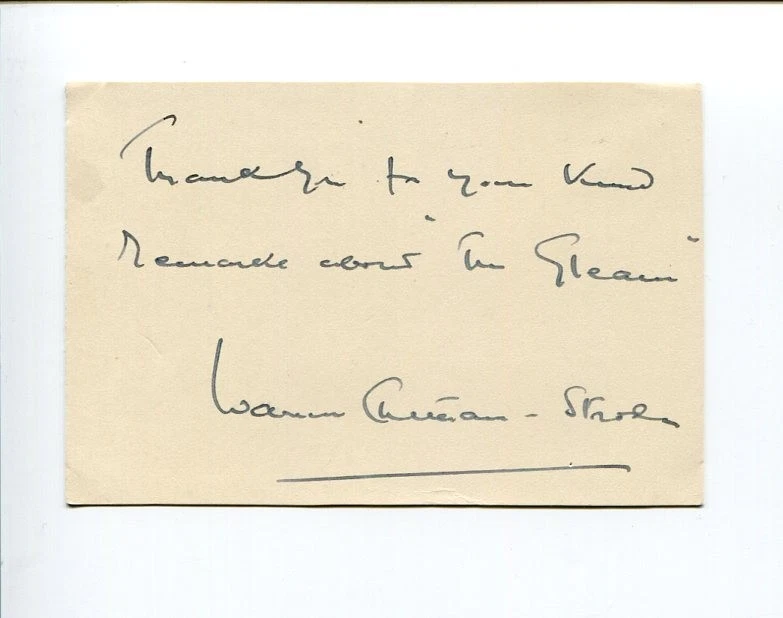 Thank you for your kind
remarks about "The Gleam"
Warren Chetham-Strode